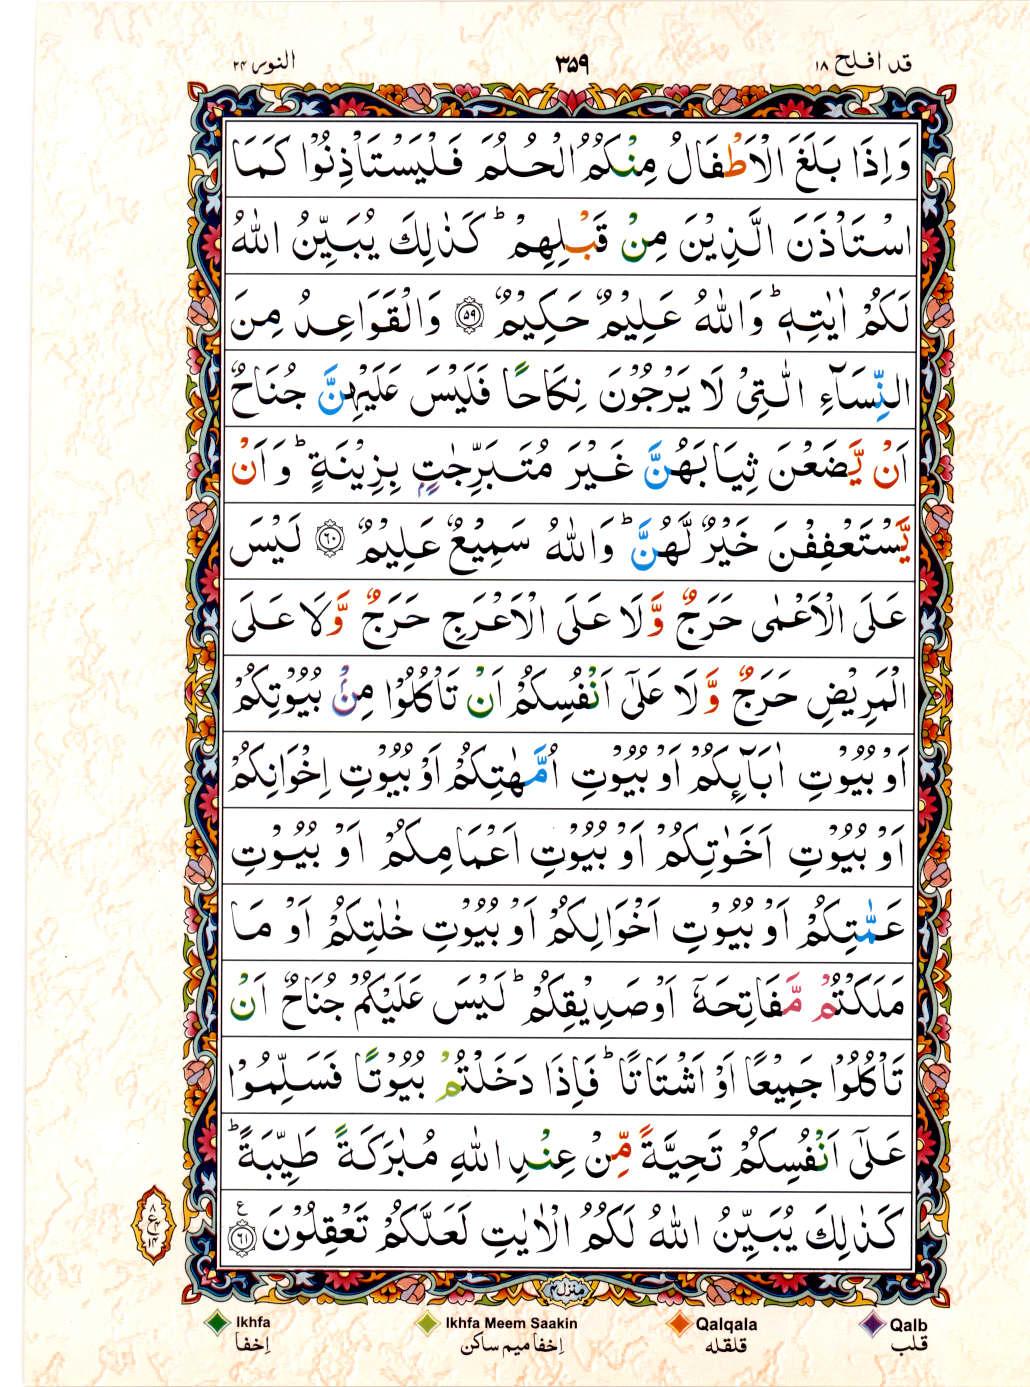 قد افلح ۱۸
۳۵۹
النور ۲۴
وَاِذَا بَلَغَ الْاَطْفَالُ مِنْكُمُ الْحُلُمَ فَلْيَسْتَاْذِنُوْا كَمَا
اسْتَاْذَنَ الَّذِيْنَ مِنْ قَبْلِهِمْ ؕ كَذٰلِكَ يُبَيِّنُ اللّٰهُ
لَكُمْ اٰيٰتِهٖ ؕ وَاللّٰهُ عَلِيْمٌ حَكِيْمٌ ﴿۵۹﴾ وَالْقَوَاعِدُ مِنَ
النِّسَآءِ الّٰتِيْ لَا يَرْجُوْنَ نِكَاحًا فَلَيْسَ عَلَيْهِنَّ جُنَاحٌ
اَنْ يَّضَعْنَ ثِيَابَهُنَّ غَيْرَ مُتَبَرِّجٰتٍۭ بِزِيْنَةٍ ؕ وَاَنْ
يَّسْتَعْفِفْنَ خَيْرٌ لَّهُنَّ ؕ وَاللّٰهُ سَمِيْعٌ عَلِيْمٌ ﴿۶۰﴾ لَيْسَ
عَلَى الْاَعْمٰى حَرَجٌ وَّلَا عَلَى الْاَعْرَجِ حَرَجٌ وَّلَا عَلَى
الْمَرِيْضِ حَرَجٌ وَّلَا عَلٰٓى اَنْفُسِكُمْ اَنْ تَاْكُلُوْا مِنْۢ بُيُوْتِكُمْ
اَوْ بُيُوْتِ اٰبَآئِكُمْ اَوْ بُيُوْتِ اُمَّهٰتِكُمْ اَوْ بُيُوْتِ اِخْوَانِكُمْ
اَوْ بُيُوْتِ اَخَوٰتِكُمْ اَوْ بُيُوْتِ اَعْمَامِكُمْ اَوْ بُيُوْتِ
عَمّٰتِكُمْ اَوْ بُيُوْتِ اَخْوَالِكُمْ اَوْ بُيُوْتِ خٰلٰتِكُمْ اَوْ مَا
مَلَكْتُمْ مَّفَاتِحَهٗۤ اَوْ صَدِيْقِكُمْ ؕ لَيْسَ عَلَيْكُمْ جُنَاحٌ اَنْ
تَاْكُلُوْا جَمِيْعًا اَوْ اَشْتَاتًا ؕ فَاِذَا دَخَلْتُمْ بُيُوْتًا فَسَلِّمُوْا
عَلٰٓى اَنْفُسِكُمْ تَحِيَّةً مِّنْ عِنْدِ اللّٰهِ مُبٰرَكَةً طَيِّبَةً ؕ
كَذٰلِكَ يُبَيِّنُ اللّٰهُ لَكُمُ الْاٰيٰتِ لَعَلَّكُمْ تَعْقِلُوْنَ ﴿۶۱﴾ ع
۸
ع
۱۴
منزل ۴
Ikhfa
اِخفا
Ikhfa Meem Saakin
اِخفا میم ساکن
Qalqala
قلقله
Qalb
قلب